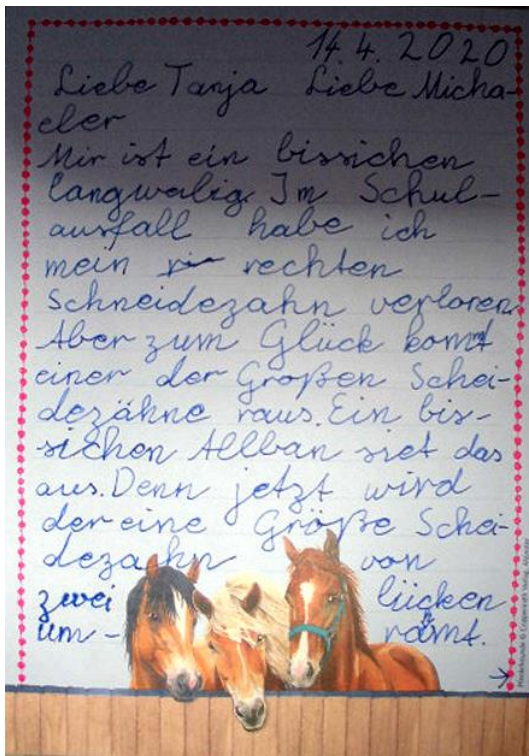 14.4.2020
Liebe Tanja Liebe Micha-
eler
Mir ist ein bissichen
langwalig. Im Schul-
ausfall habe ich
mein rechten
Schneidezahn verloren.
Aber zum Glück komt
einer der Großen Schei-
dezähne raus. Ein bis-
sichen Allban siet das
aus. Denn jetzt wird
der eine Größe Schei-
dezahn von
zwei lücken
um- rämt.